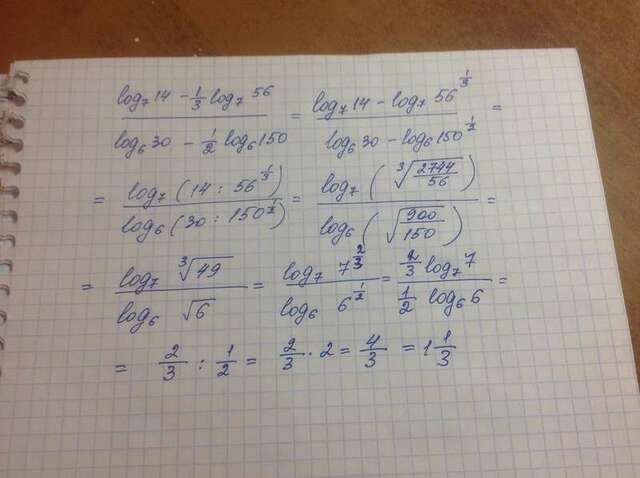 (log₇ 14 - 1/3 log₇ 56) / (log₆ 30 - 1/2 log₆ 150) = (log₇ 14 - log₇ 56^(1/3)) / (log₆ 30 - log₆ 150^(1/2)) =
= log₇ (14 : 56^(1/3)) / log₆ (30 : 150^(1/2)) = log₇ (∛(2744/56)) / log₆ (√(900/150)) =
= log₇ ∛49 / log₆ √6 = log₇ 7^(2/3) / log₆ 6^(1/2) = (2/3 log₇ 7) / (1/2 log₆ 6) =
= 2/3 : 1/2 = 2/3 · 2 = 4/3 = 1 1/3